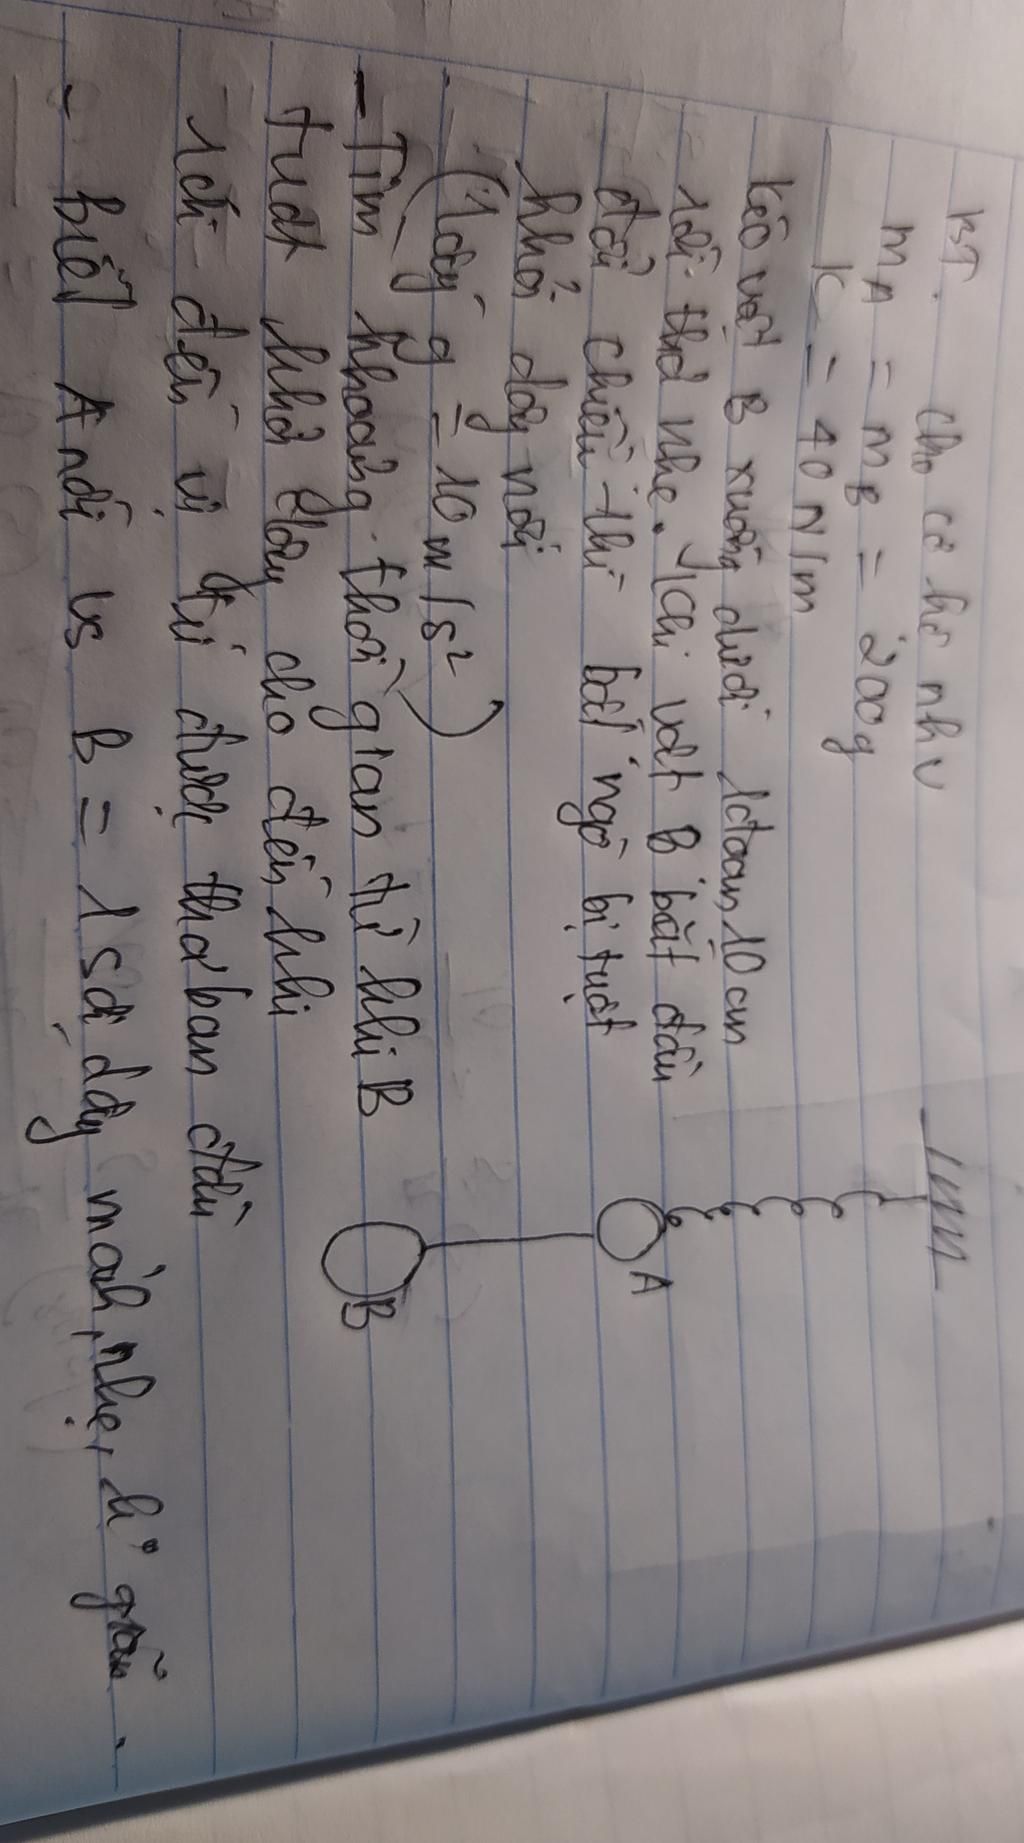 BT. Cho cơ hệ như
mA = mB = 200g
K = 40 N/m
kéo vật B xuống dưới 1 đoạn 10 cm
rồi thả nhẹ. Khi vật B bắt đầu
đổi chiều thì bất ngờ bị tuột
khỏi dây nối
(lấy g = 10 m/s²)
- Tìm khoảng thời gian từ khi B
tuột khỏi dây cho đến khi
rơi đến vị trí được thả ban đầu
- biết A nối vs B = 1 sợi dây mảnh, nhẹ, k° giãn.
A
B